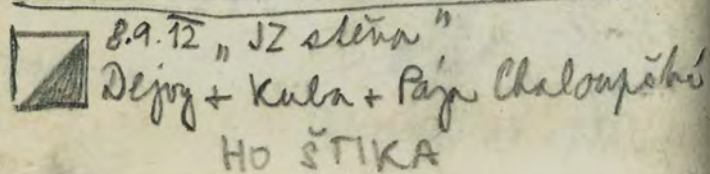 8.9.12 „JZ stěna"
Dejvy + Kuba + Pája Chaloupští
HO ŠTIKA